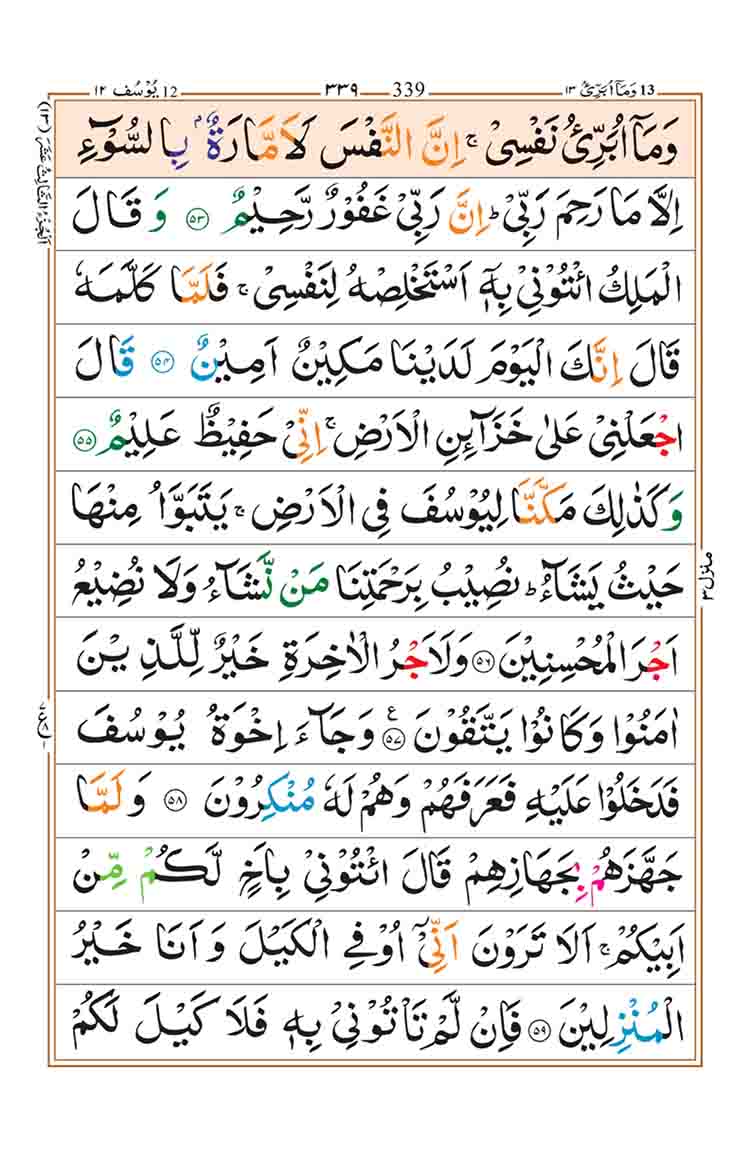 12 يُوْسُف ١٢ ٣٣٩ 339 13 وَمَآ اُبَرِّئُ ١٣
وَمَآ اُبَرِّئُ نَفْسِیْ ۚ اِنَّ النَّفْسَ لَاَمَّارَةٌۢ بِالسُّوْٓءِ
اِلَّا مَا رَحِمَ رَبِّیْ ؕ اِنَّ رَبِّیْ غَفُوْرٌ رَّحِیْمٌ ۝۵۳ وَ قَالَ
الْمَلِكُ ائْتُوْنِیْ بِهٖۤ اَسْتَخْلِصْهُ لِنَفْسِیْ ۚ فَلَمَّا كَلَّمَهٗ
قَالَ اِنَّكَ الْیَوْمَ لَدَیْنَا مَكِیْنٌ اَمِیْنٌ ۝۵۴ قَالَ
اجْعَلْنِیْ عَلٰی خَزَآىِٕنِ الْاَرْضِ ۚ اِنِّیْ حَفِیْظٌ عَلِیْمٌ ۝۵۵
وَ كَذٰلِكَ مَكَّنَّا لِیُوْسُفَ فِی الْاَرْضِ ۚ یَتَبَوَّاُ مِنْهَا
حَیْثُ یَشَآءُ ؕ نُصِیْبُ بِرَحْمَتِنَا مَنْ نَّشَآءُ وَلَا نُضِیْعُ
اَجْرَ الْمُحْسِنِیْنَ ۝۵۶ وَلَاَجْرُ الْاٰخِرَةِ خَیْرٌ لِّلَّذِیْنَ
اٰمَنُوْا وَكَانُوْا یَتَّقُوْنَ ۝۵۷ ع وَجَآءَ اِخْوَةُ یُوْسُفَ
فَدَخَلُوْا عَلَیْهِ فَعَرَفَهُمْ وَهُمْ لَهٗ مُنْكِرُوْنَ ۝۵۸ وَ لَمَّا
جَهَّزَهُمْ بِجَهَازِهِمْ قَالَ ائْتُوْنِیْ بِاَخٍ لَّكُمْ مِّنْ
اَبِیْكُمْ ۚ اَلَا تَرَوْنَ اَنِّیْۤ اُوْفِی الْكَیْلَ وَ اَنَا خَیْرُ
الْمُنْزِلِیْنَ ۝۵۹ فَاِنْ لَّمْ تَاْتُوْنِیْ بِهٖ فَلَا كَیْلَ لَكُمْ
اَلْجُزْءُ الثَّالِثُ عَشَرَ (١٣)
منزل ٣